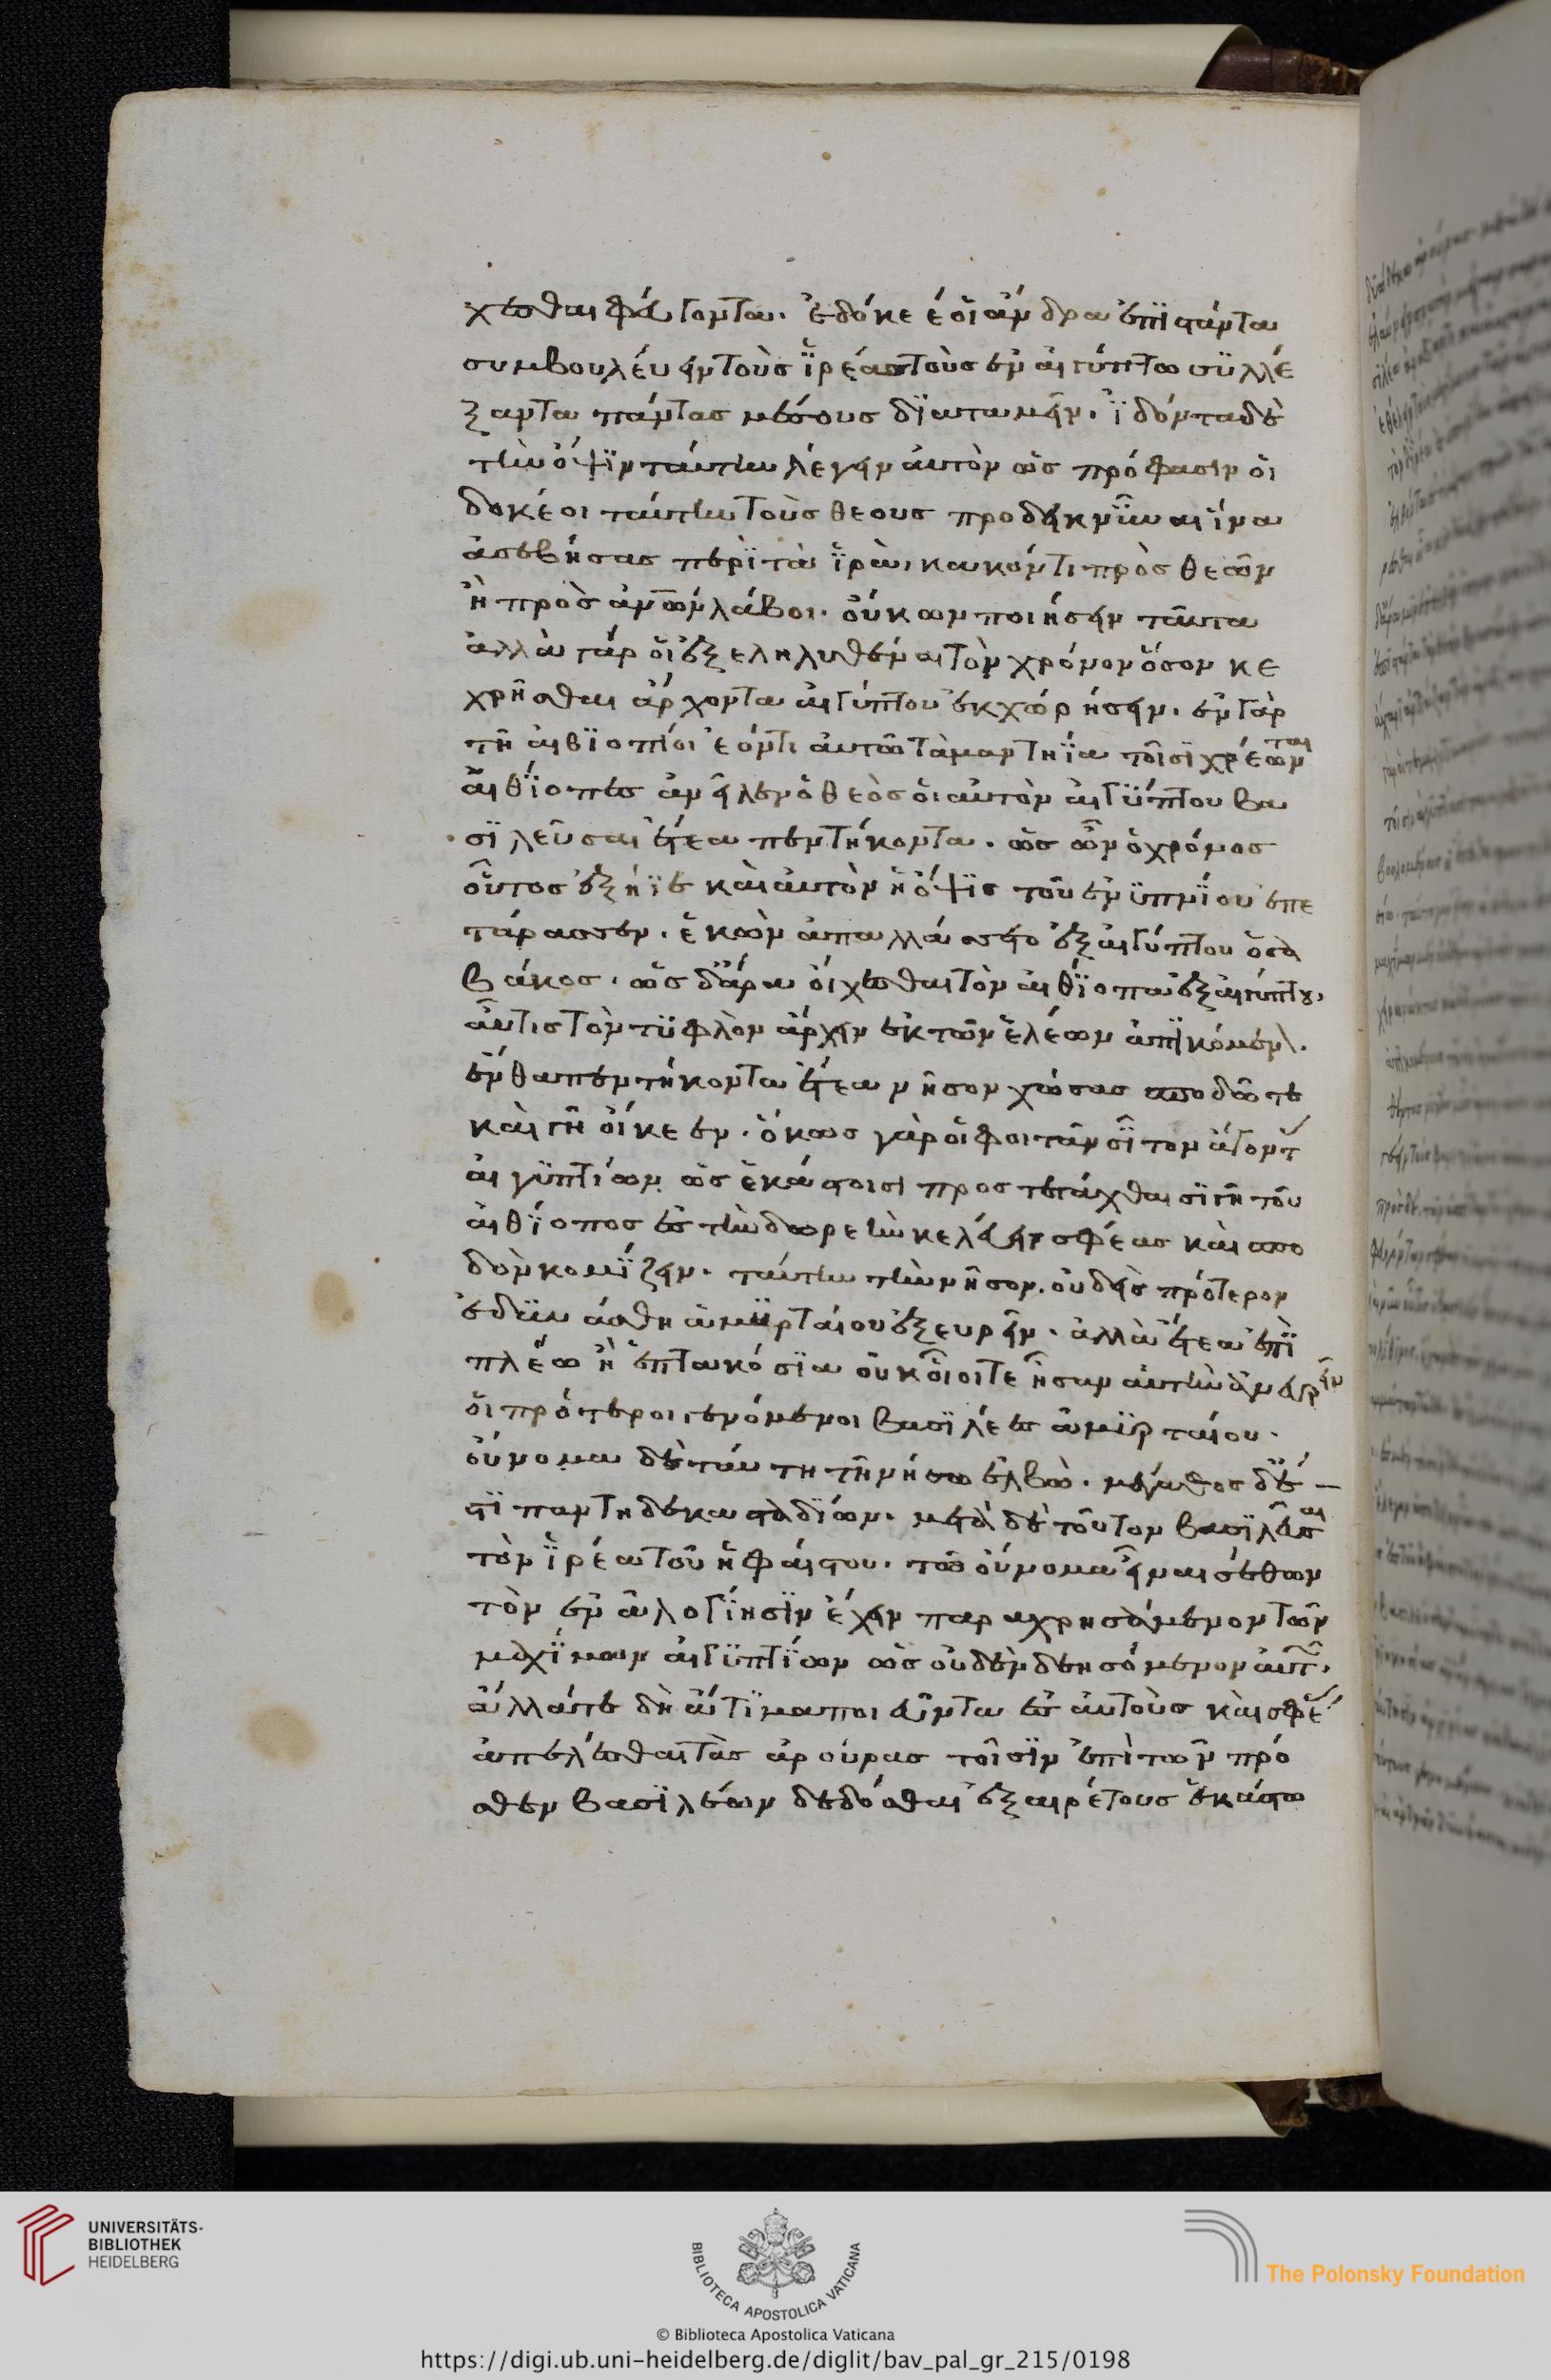 χεσθαι φεύγοντα. ἐδόκεέ οἱ ἄνδρα ἐπιστάντα
συμβουλεύειν τοὺς ἱρέας τοὺς ἐν αἰγύπτω συλλέ
ξαντα πάντας μέσους διαταμεῖν. ἰδόντα δὲ
τὴν ὄψιν ταύτην λέγειν αὐτὸν ὡς πρόφασιν οἱ
δοκέοι ταύτην τοὺς θεους προδεικνῦναι ἵνα
ἀσεβήσας περὶ τὰ ἱρὰ, κακόν τι πρὸς θεῶν
ἢ πρὸς ἀνῶν λάβοι. οὔκων ποιήσειν ταῦτα
ἀλλὰ γάρ οἱ ἐξεληλυθέναι τὸν χρόνον ὅσον κε
χρῆσθαι ἄρχοντα αἰγύπτου ἐκχωρήσειν. ἐν γὰρ
τῆ αἰθιοπίηι ἐόντι αὐτῶ τὰ μαντήϊα τοῖσι χρέωνται
αἰθίοπες ἀνεῖλεν ὁ θεὸς οἱ αὐτὸν αἰγύπτου βα
σιλεῦσαι ἔτεα πεντήκοντα. ὡς ὦν ὁ χρόνος
οὗτος ἐξήϊε καὶ αὐτὸν ἡ ὄψις τοῦ ἐνυπνίου ἐπε
τάρασσεν. ἑκὼν ἀπαλλάσσετο ἐξ αἰγύπτου ὁ σα
βάκος. ὡς δ' ἄρα οἴχεσθαι τὸν αἰθίοπα ἐξ αἰγύπτου,
αὖτις τὸν τυφλὸν ἄρχειν ἐκ τῶν ἑλέων ἀπικόμεν.
ἔνθα πεντήκοντα ἔτεα νῆσον χώσας σποδῶ τε
καὶ γῆ οἴκεεν. ὅκως γάρ οἱ φοιτᾶν σῖτον ἄγοντ
αἰγυπτίων ὡς ἑκάστοισι προστετάχθαι σιγῆ τοῦ
αἰθίοπος ἐς τὴν δωρεὴν κελεύειν σφέας καὶ σπο
δὸν κομίζειν. ταύτην τὴν νῆσον. οὐδεὶς πρότερον
ἐδυνάσθη ἀμυρταίου ἐξευρεῖν. ἀλλὰ ἔτεα ἐπὶ
πλέω ἢ ἑπτακόσια οὐκ οἷοί τε ἦσαν αὐτὴν ἀνευρεῖν
οἱ πρότεροι γενόμενοι βασιλέες ἀμυρταίου.
οὔνομα δὲ ταύτη τῆ νήσω ἐλβώ. μέγαθος δ' ἐ
στὶ πάντη δέκα σταδίων. μετὰ δὲ τοῦτον βασιλεῦσαι
τὸν ἱρέα τοῦ ἡφαίστου. τῶ οὔνομα εἶναι σέθων
τὸν ἐν ἀλογίησιν ἔχειν παραχρησάμενον τῶν
μαχίμων αἰγυπτίων ὡς οὐδὲν δεησόμενον αὐτ.
ἄλλά τε δὴ ἄτιμα ποιεῦντα ἐς αὐτοὺς καὶ σφέ
ἀπελέσθαι τὰς ἀρούρας τοῖσιν ἐπὶ τῶν πρό
σθεν βασιλέων δεδόσθαι ἐξαιρέτους ἑκάστω
UNIVERSITÄTS-
BIBLIOTHEK
HEIDELBERG
BIBLIOTECA APOSTOLICA VATICANA
The Polonsky Foundation
© Biblioteca Apostolica Vaticana
https://digi.ub.uni-heidelberg.de/diglit/bav_pal_gr_215/0198